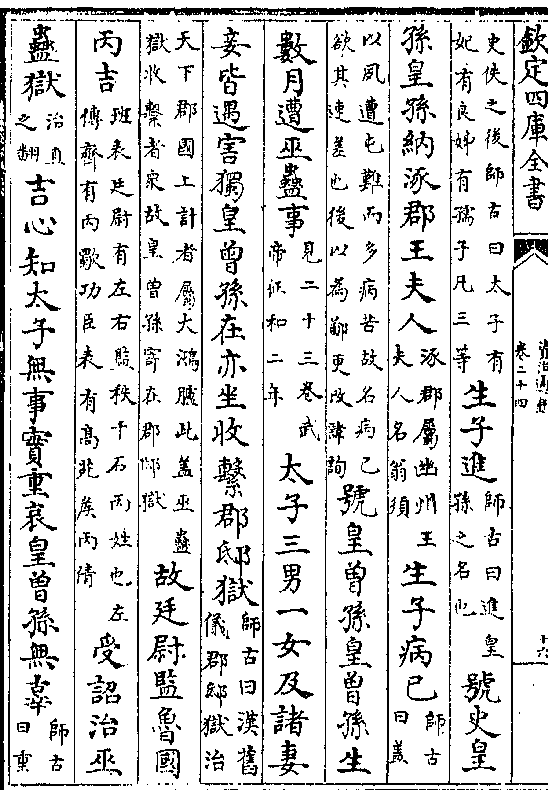 欽定四庫全書
資治通鑑
卷二十四
十六
史佚之後師古曰太子有
妃有良娣有孺子凡三等
生子進
師古曰進皇
孫之名也
號史皇
孫皇孫納涿郡王夫人
涿郡屬幽州王
夫人名翁須
生子病已
師古
曰蓋
以夙遭屯難而多病苦故名病已
欲其速差也後以為鄙更改諱詢
號皇曾孫皇曾孫生
數月遭巫蠱事
見二十三卷武
帝征和二年
太子三男一女及諸妻
妾皆遇害獨皇曾孫在亦坐收繫郡邸獄
師古曰漢舊
儀郡邸獄治
天下郡國上計者屬大鴻臚此蓋巫蠱
獄收繫者衆故皇曾孫寄在郡邸獄
故廷尉監魯國
丙吉
班表廷尉有左右監秩千石丙姓也左
傳齊有丙歜功臣表有高苑侯丙倩
受詔治巫
蠱獄
治直
之翻
吉心知太子無事實重哀皇曾孫無辜
師古
曰重